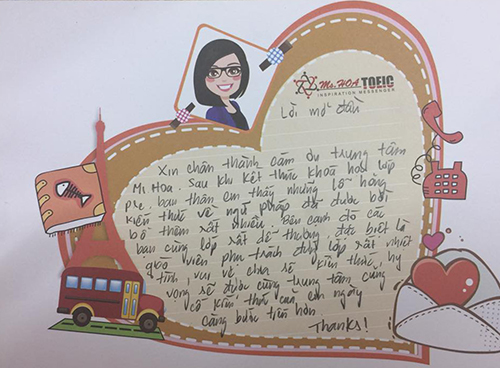 Ms. HOA TOEIC
INSPIRATION MESSENGER
Lời mở đầu
Xin chân thành cảm ơn trung tâm
Ms Hoa. Sau khi kết thúc khóa học lớp
Pre, bản thân em thấy những lỗ hổng
kiến thức về ngữ pháp đã được bồi
bổ thêm rất nhiều. Bên cạnh đó các
bạn cùng lớp rất dễ thương đặc biệt là
giáo viên phụ trách lớp rất nhiệt
tình, vui vẻ chia sẻ kiến thức, hy
vọng sẽ được cùng trung tâm củng
cố kiến thức của em ngày
càng bước tiến hơn
Thanks!